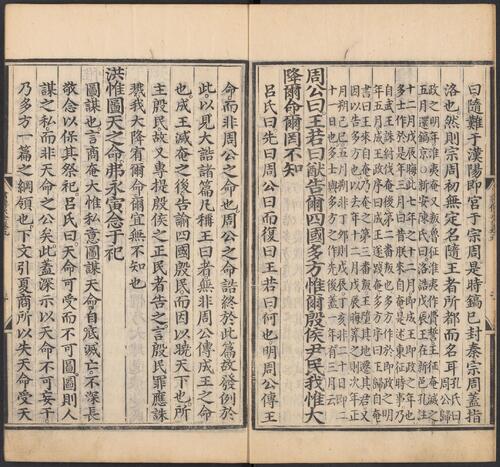 曰隨難于漢陽即宮于宗周是時鎬已封秦宗周蓋指
洛也然則宗周初無定名隨王者所都而名耳孔氏曰周公歸
政之明年淮夷奄又叛魯征淮夷作費誓王征奄滅之
五月還鎬京○新安陳氏曰洛誥戊辰王在新邑孔注
十二月戊辰晦此七年之十二月即成王即政之年也
多士作於是年三月曰昔朕來自奄是述東征時事乃
自武王誅紂伐奄後第二番叛也多方作於即政之明
周公曰王若曰猷告爾四國多方惟爾殷侯尹民我惟大
降爾命爾罔不知
呂氏曰先曰周公曰而復曰王若曰何也明周公傳王
命而非周公之命也周公之命誥終於此篇故發例於
此以見大誥諸篇凡稱王曰者無非周公傳成王之命
也成王滅奄之後告諭四國殷民而因以曉天下也所
主殷民故又專提殷侯之正民者告之言殷民罪應誅
戮我大降宥爾命爾宜無不知也
洪惟圖天之命弗永寅念于祀
圖謀也言商奄大惟私意圖謀天命自厎滅亡不深長
敬念以保其祭祀呂氏曰天命可受而不可圖圖則人
謀之私而非天命之公矣此蓋深示以天命不可妄干
乃多方一篇之綱領也下文引夏商所以失天命受天